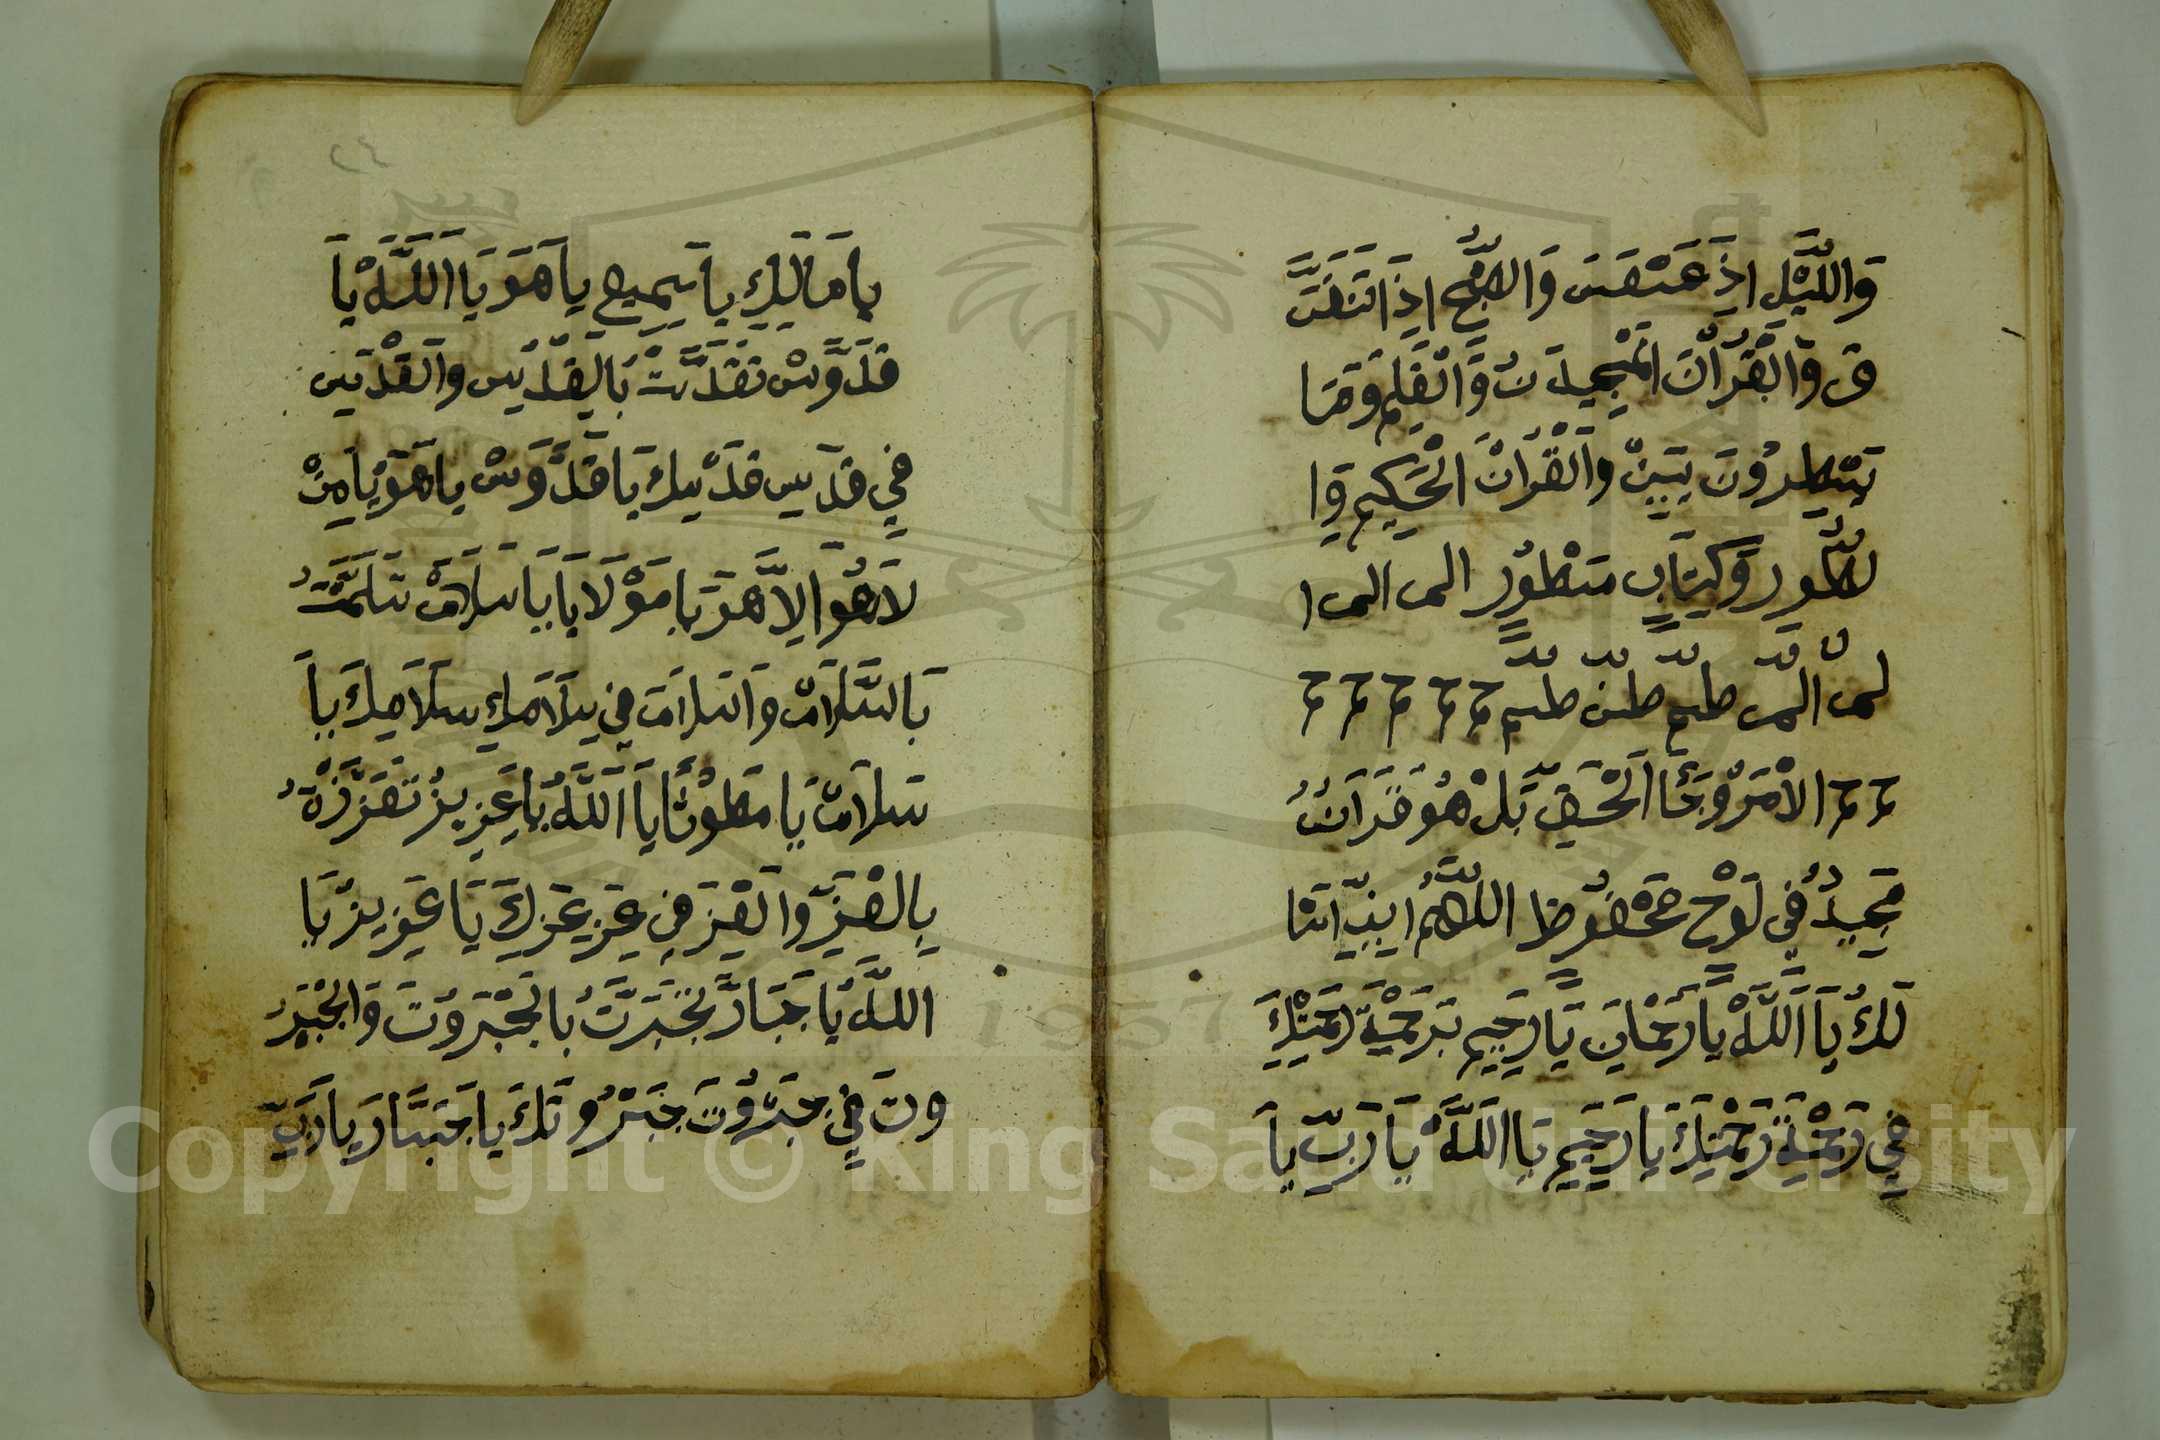 وَاللَّيْلِ اِذَ عَسْعَسَ وَالصُّبْحِ اِذَا تَنَفَّسَ
قَ وَالْقُرْاَنَ الْمَجِيدَ نُ وَالْقَلِمِ وَمَا
يَسْطِرُونَ يَسِنْ وَالْقُرَانْ الْحَكِيمِ وَا
لطُّورِ وَكِتَابٍ مَسْطُورٍ الم الم ا
لم الم طسم طس طسم حم حم حم حم حم
حم حم الاَمْرُ وَجَآ الْحَقّ بَلْ هُوَ قُرَانُ
مَجِيدُ فِي لَوْحٍ مَحْفُوظٍ اللهُمَّ انِّي اَنَا
لَكُ يَا اَللَّهْ يَا رَحْمَانَ يَا رَحِيمِ بَرَحْمَةِ رَحْمَتِكَ
فِي رَحْمَةِ رَحْمَتِكَ يَا رَحِيمِ يَا اللَّهْ يَا رَبِّ يَا
يَا مَالِكِ يَا سَمِيعِ يَا هَوَ يَا اَللَّهْ يَا
قَدَوَّسْ تَقَدَّسْتْ بَالقْدْيس وَالقْدْيس
فِي قدَيس قدَسِكَ يَا قَدَّوَسْ يَا هَوَ يَا مِنْ
لَا هُوَ اِلاَّ هَوَ يَا مَوْلَايَا يَا سَلَامْ تسَلَّمْتُ
بَالسَّلَامْ وَالسَلَامَ فِي سِلَامِكِ سِلَامِكَ يَا
سَلَامْ يَا مَعْطُوْنَا يَا اَللَّهُ يَا عَزِيزُ تَعَزَّزْتُ
بِالْعِزَّ وَالْعِزَ فِي عِزِ عِزِكَ يَا عَزِيزْ يَا
اللَّهُ يَا جَبَارْ تَجَبَرَّتُ بَالْجَبْرَوُتَ وَالْجَبْرُ
وتَ فِي جَبَرُوْتَ جَبَرُوتَكَ يَا جَبَّارَ يَا رَبِّ
٤٥
Copyright © King Saud University
1957